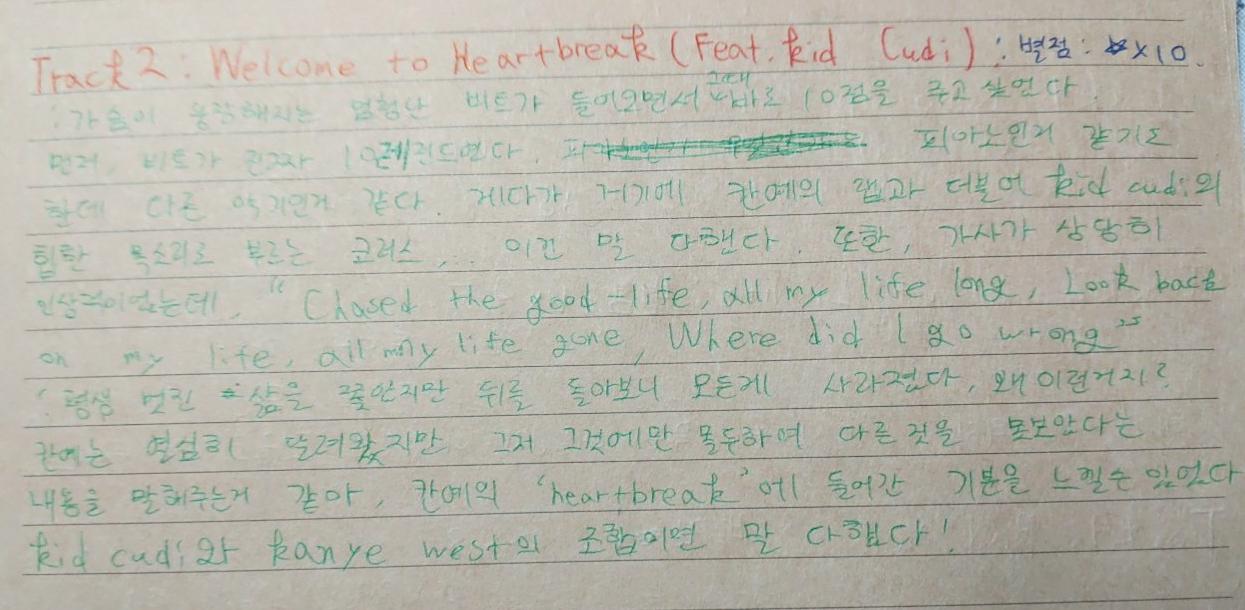 Track2 : Welcome to Heartbreak (Feat. kid Cudi) : 별점 : ☆×10.
: 가슴이 웅장해지는 엄청난 비트가 들어오면서 그대 바로 10점을 주고 싶었다.
먼저, 비트가 레전드였다. 피아노인거 같기도
한데 다른 악기인거 같다. 게다가 거기에 칸예의 랩과 더불어 kid cudi의
힙한 목소리로 부르는 코러스,.. 이건 말 다했다. 또한, 가사가 상당히
인상적이었는데, "Chased the good-life, all my life long, Look back
on my life, all my life gone, Where did I go wrong"
: 평생 멋진 삶을 쫓았지만 뒤를 돌아보니 모든게 사라졌다, 왜 이런거지?
칸예는 열심히 달려왔지만 그저 그것에만 몰두하여 다른 것을 못보았다는
내용을 말해주는거 같아, 칸예의 'heartbreak'에 들어간 기분을 느낄수 있었다
kid cudi와 kanye west의 조합이면 말 다했다!